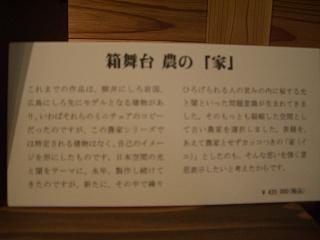 箱舞台 農の「家」
これまでの作品は、柳井にしろ岩国、
広島にしろ先にモデルとなる建物があ
り、いわばそれらのミニチュアのコピー
だったのですが、この農家シリーズで
は特定される建物はなく、自己のイメー
ジを形にしたものです。日本空間の光
と闇をテーマに、永年、製作し続けて
きたのですが、新たに、その中で繰り
ひろげられる人の営みの内に宿する光
と闇といった問題意識が生まれてきま
した。そのもっとも凝縮した空間とし
て古い農家を選択しました。表題を、
あえて農家とせずカッコつきの「家（イ
エ）」としたのも、そんな思いを強く意
思表示したいと考えたからです。
¥ 420,000(税込)